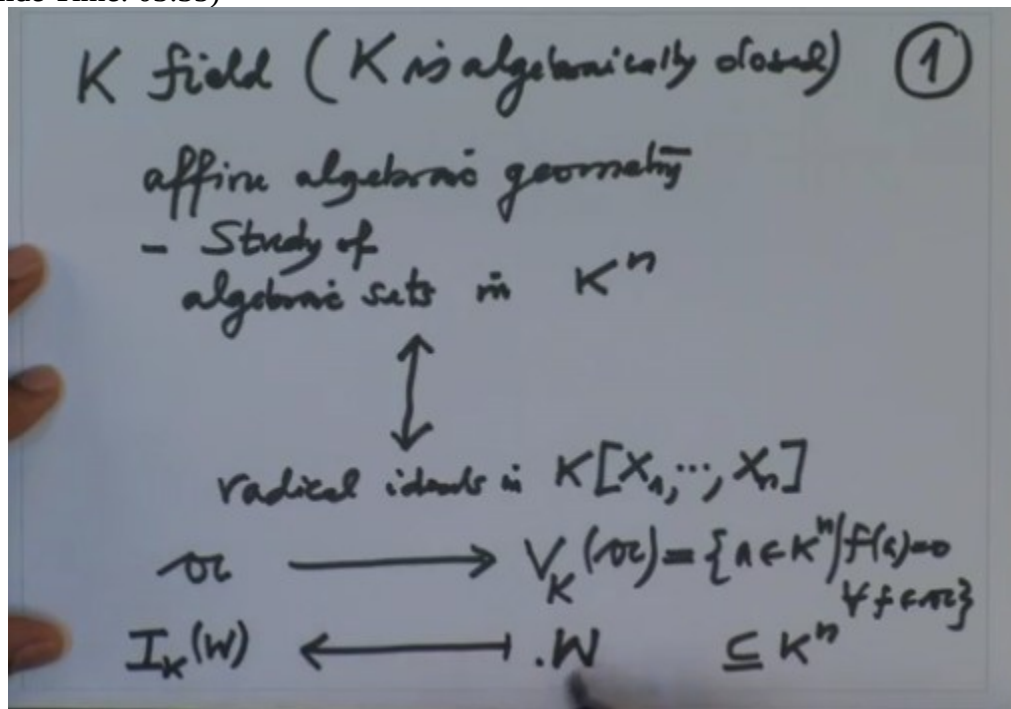 K field (K is algebraically closed) ①
affine algebraic geometry
- Study of
algebraic sets in Kⁿ
↕
radical ideals in K[X₁, ..., Xₙ]
𝔞 ⟶ V_K(𝔞) = {a ∈ Kⁿ | f(a)=0
∀ f ∈ 𝔞}
I_K(W) ⟵ W ⊆ Kⁿ